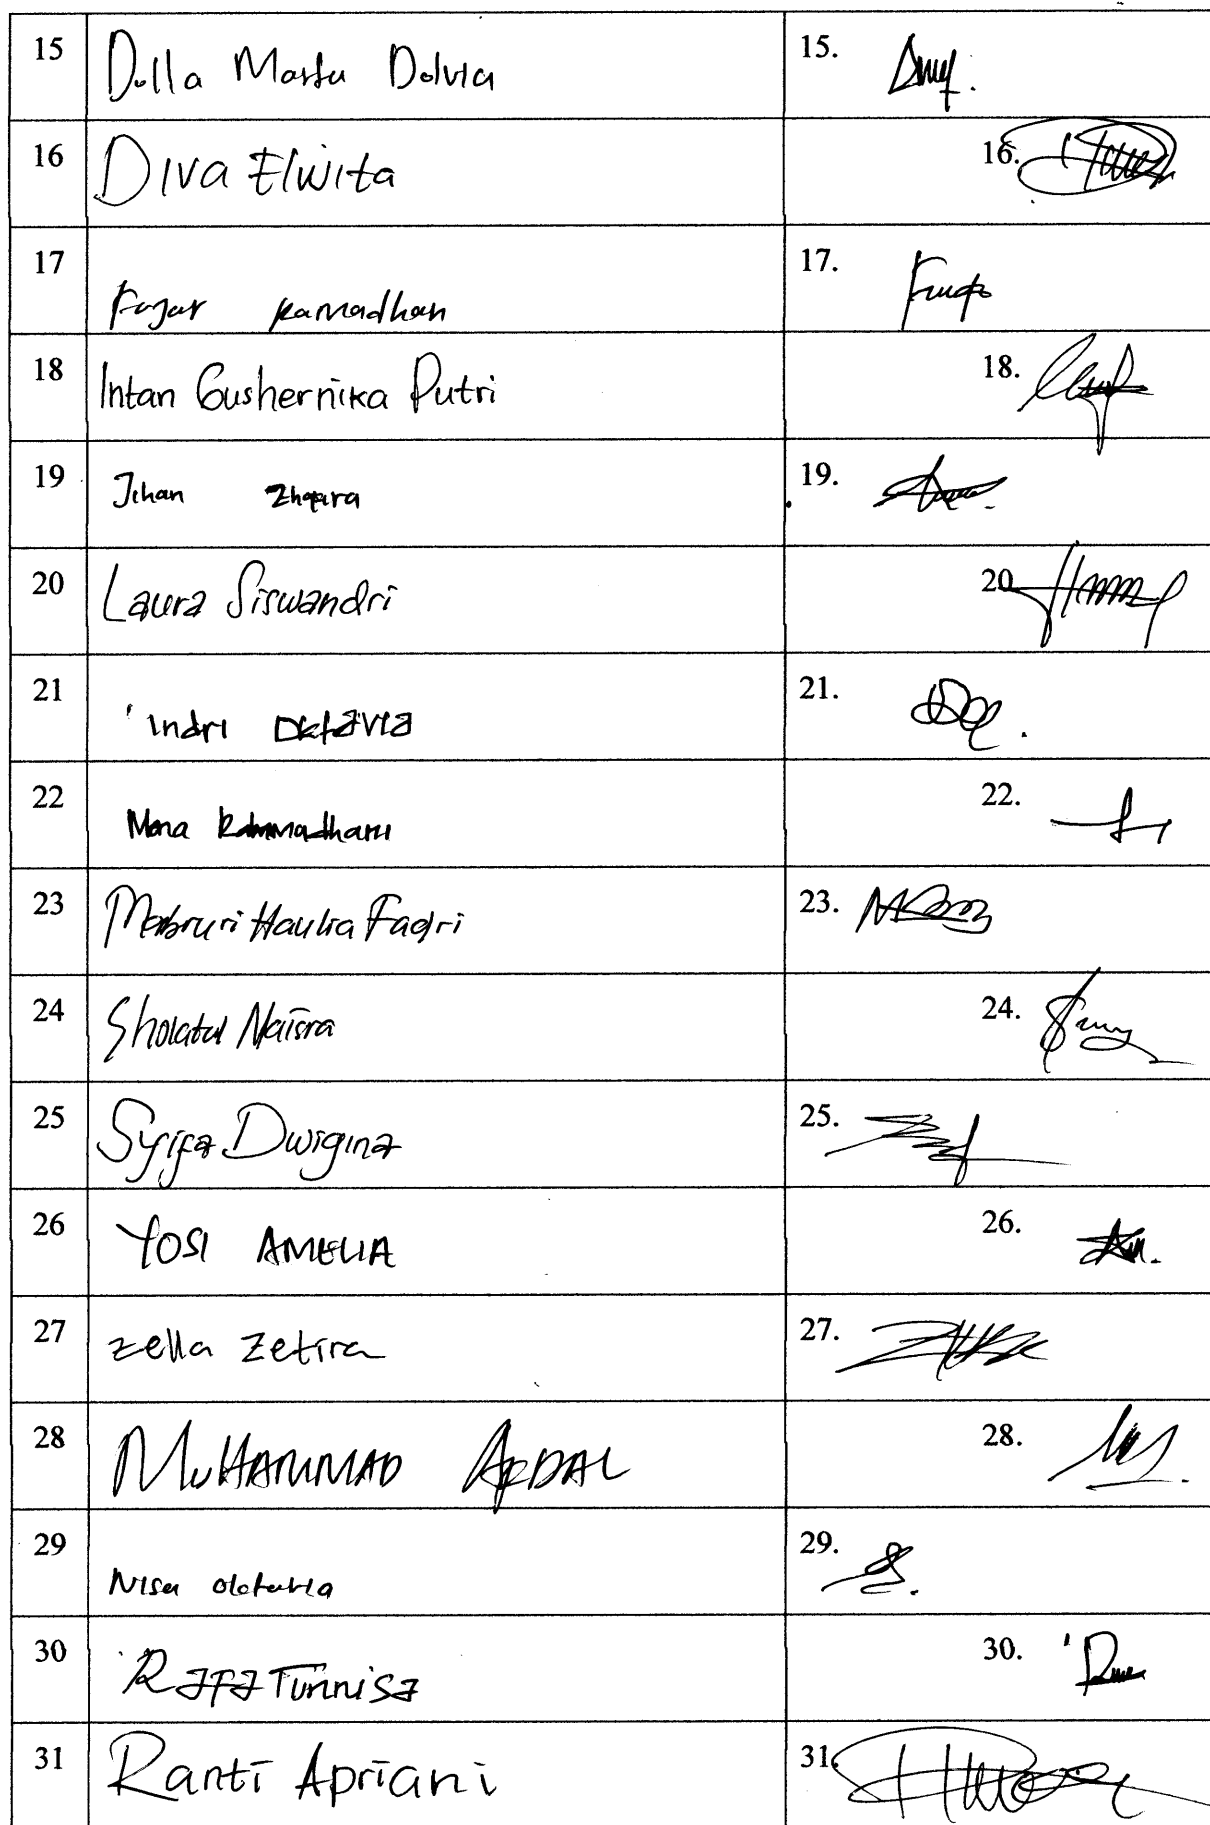 15 Dolla Marta Dolvia 15.
16 Diva Elwita 16.
17 Fajar Ramadhan 17.
18 Intan Gushernika Putri 18.
19 Jihan 19.
20 Laura Siswandri 20
21 Indri Oktavia 21.
22 Mona Rahmadhani 22.
23 Mabruri Haulia Fadri 23.
24 Sholatul Naisra 24.
25 Syifa Dwigina 25.
26 YOSI AMELIA 26.
27 Zella Zetira 27.
28 MUHAMMAD AFDAL 28.
29 Nisa Oktavia 29.
30 Rafa Tunnisa 30.
31 Ranti Apriani 31.